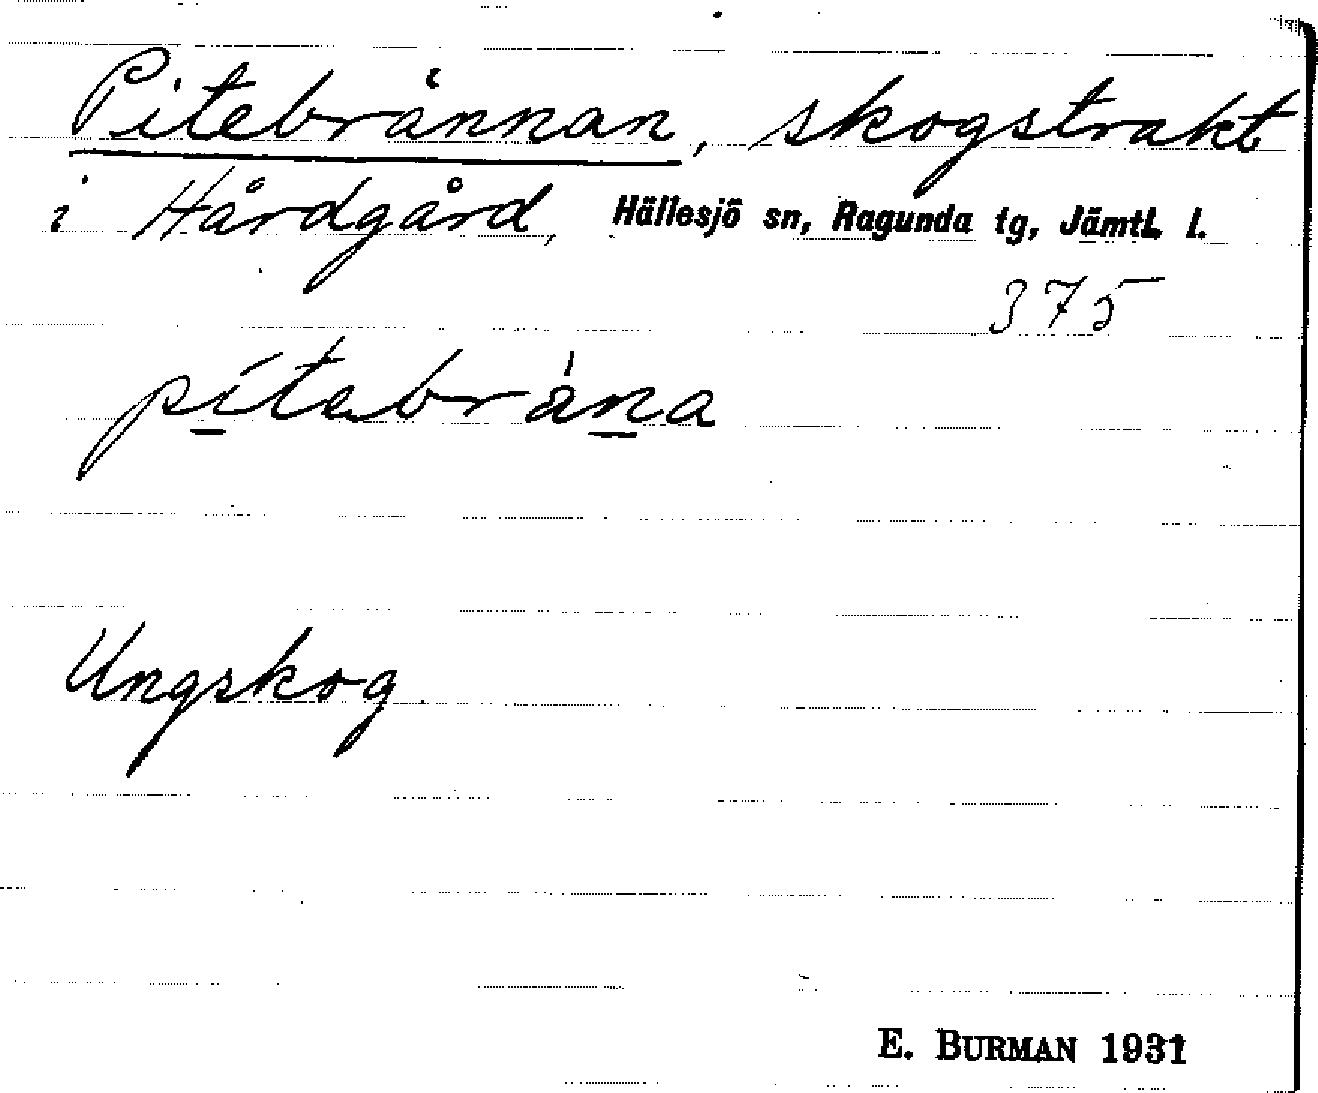 Pitebrännan, skogstrakt
i Hårdgård, Hällesjö sn, Ragunda tg, Jämtl. l.
375
pítabrä́na
Ungskog.
E. BURMAN 1931